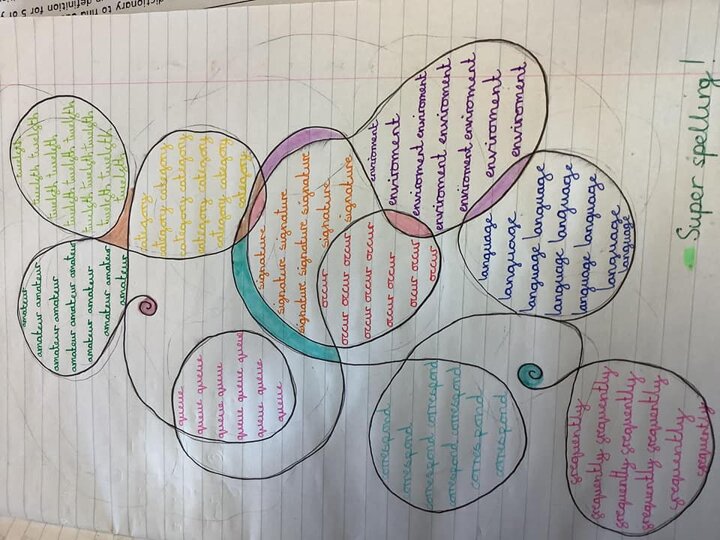 dictionary to find
definition for 5 of y
twelfth
twelfth twelfth
twelfth twelfth
twelfth twelfth twelfth
twelfth twelfth
twelfth
category
category category
category category
category category
category category
category
amateur
amateur amateur
amateur amateur
amateur amateur amateur
amateur amateur
amateur amateur
amateur
signature
signature signature
signature signature signature
signature
signature
enviroment
enviroment
enviroment enviroment
enviroment enviroment
enviroment enviroment
enviroment
enviroment
occur
occur occur occur
occur occur occur
occur occur
occur
language
language
language language
language language
language language
language language
language
language
queue
queue queue
queue queue
queue queue queue
queue queue
queue
correspond
correspond
correspond correspond
correspond correspond
correspond
correspond
frequently
frequently frequently
frequently frequently
frequently frequently
frequently
frequently
Super spelling!